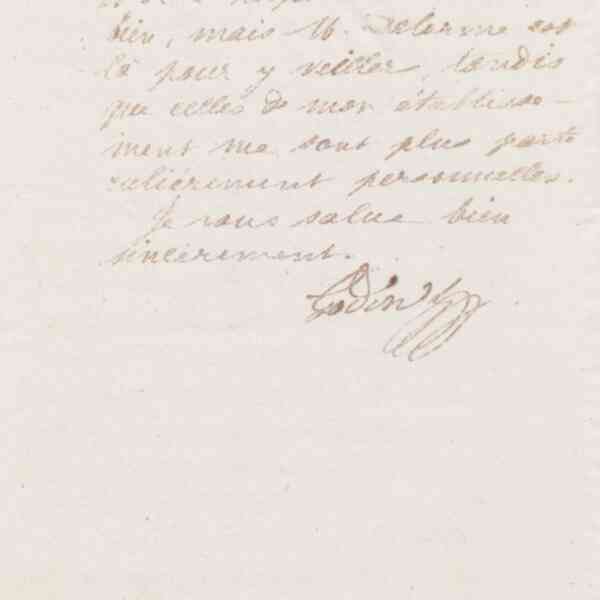 bien, mais M. Delorme est
là pour y veiller, tandis
que celles de mon établisse-
ment me sont plus parti
culièrement personnelles.
Je vous salue bien
sincèrement.
Godin